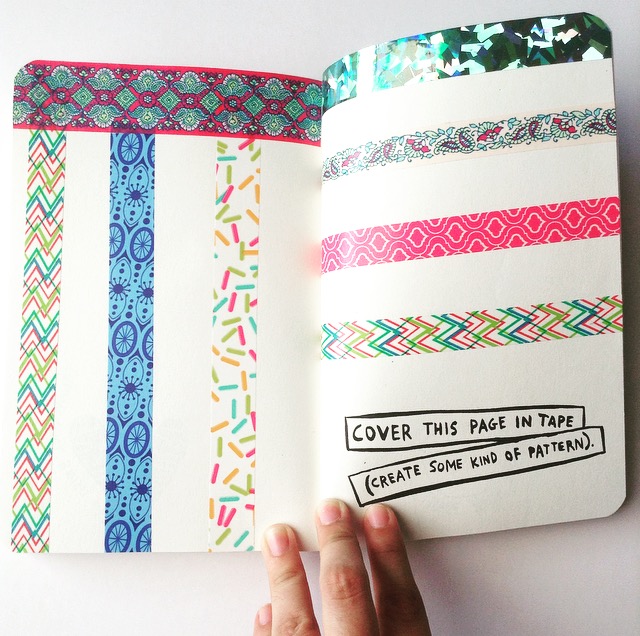 COVER THIS PAGE IN TAPE
(CREATE SOME KIND OF PATTERN).